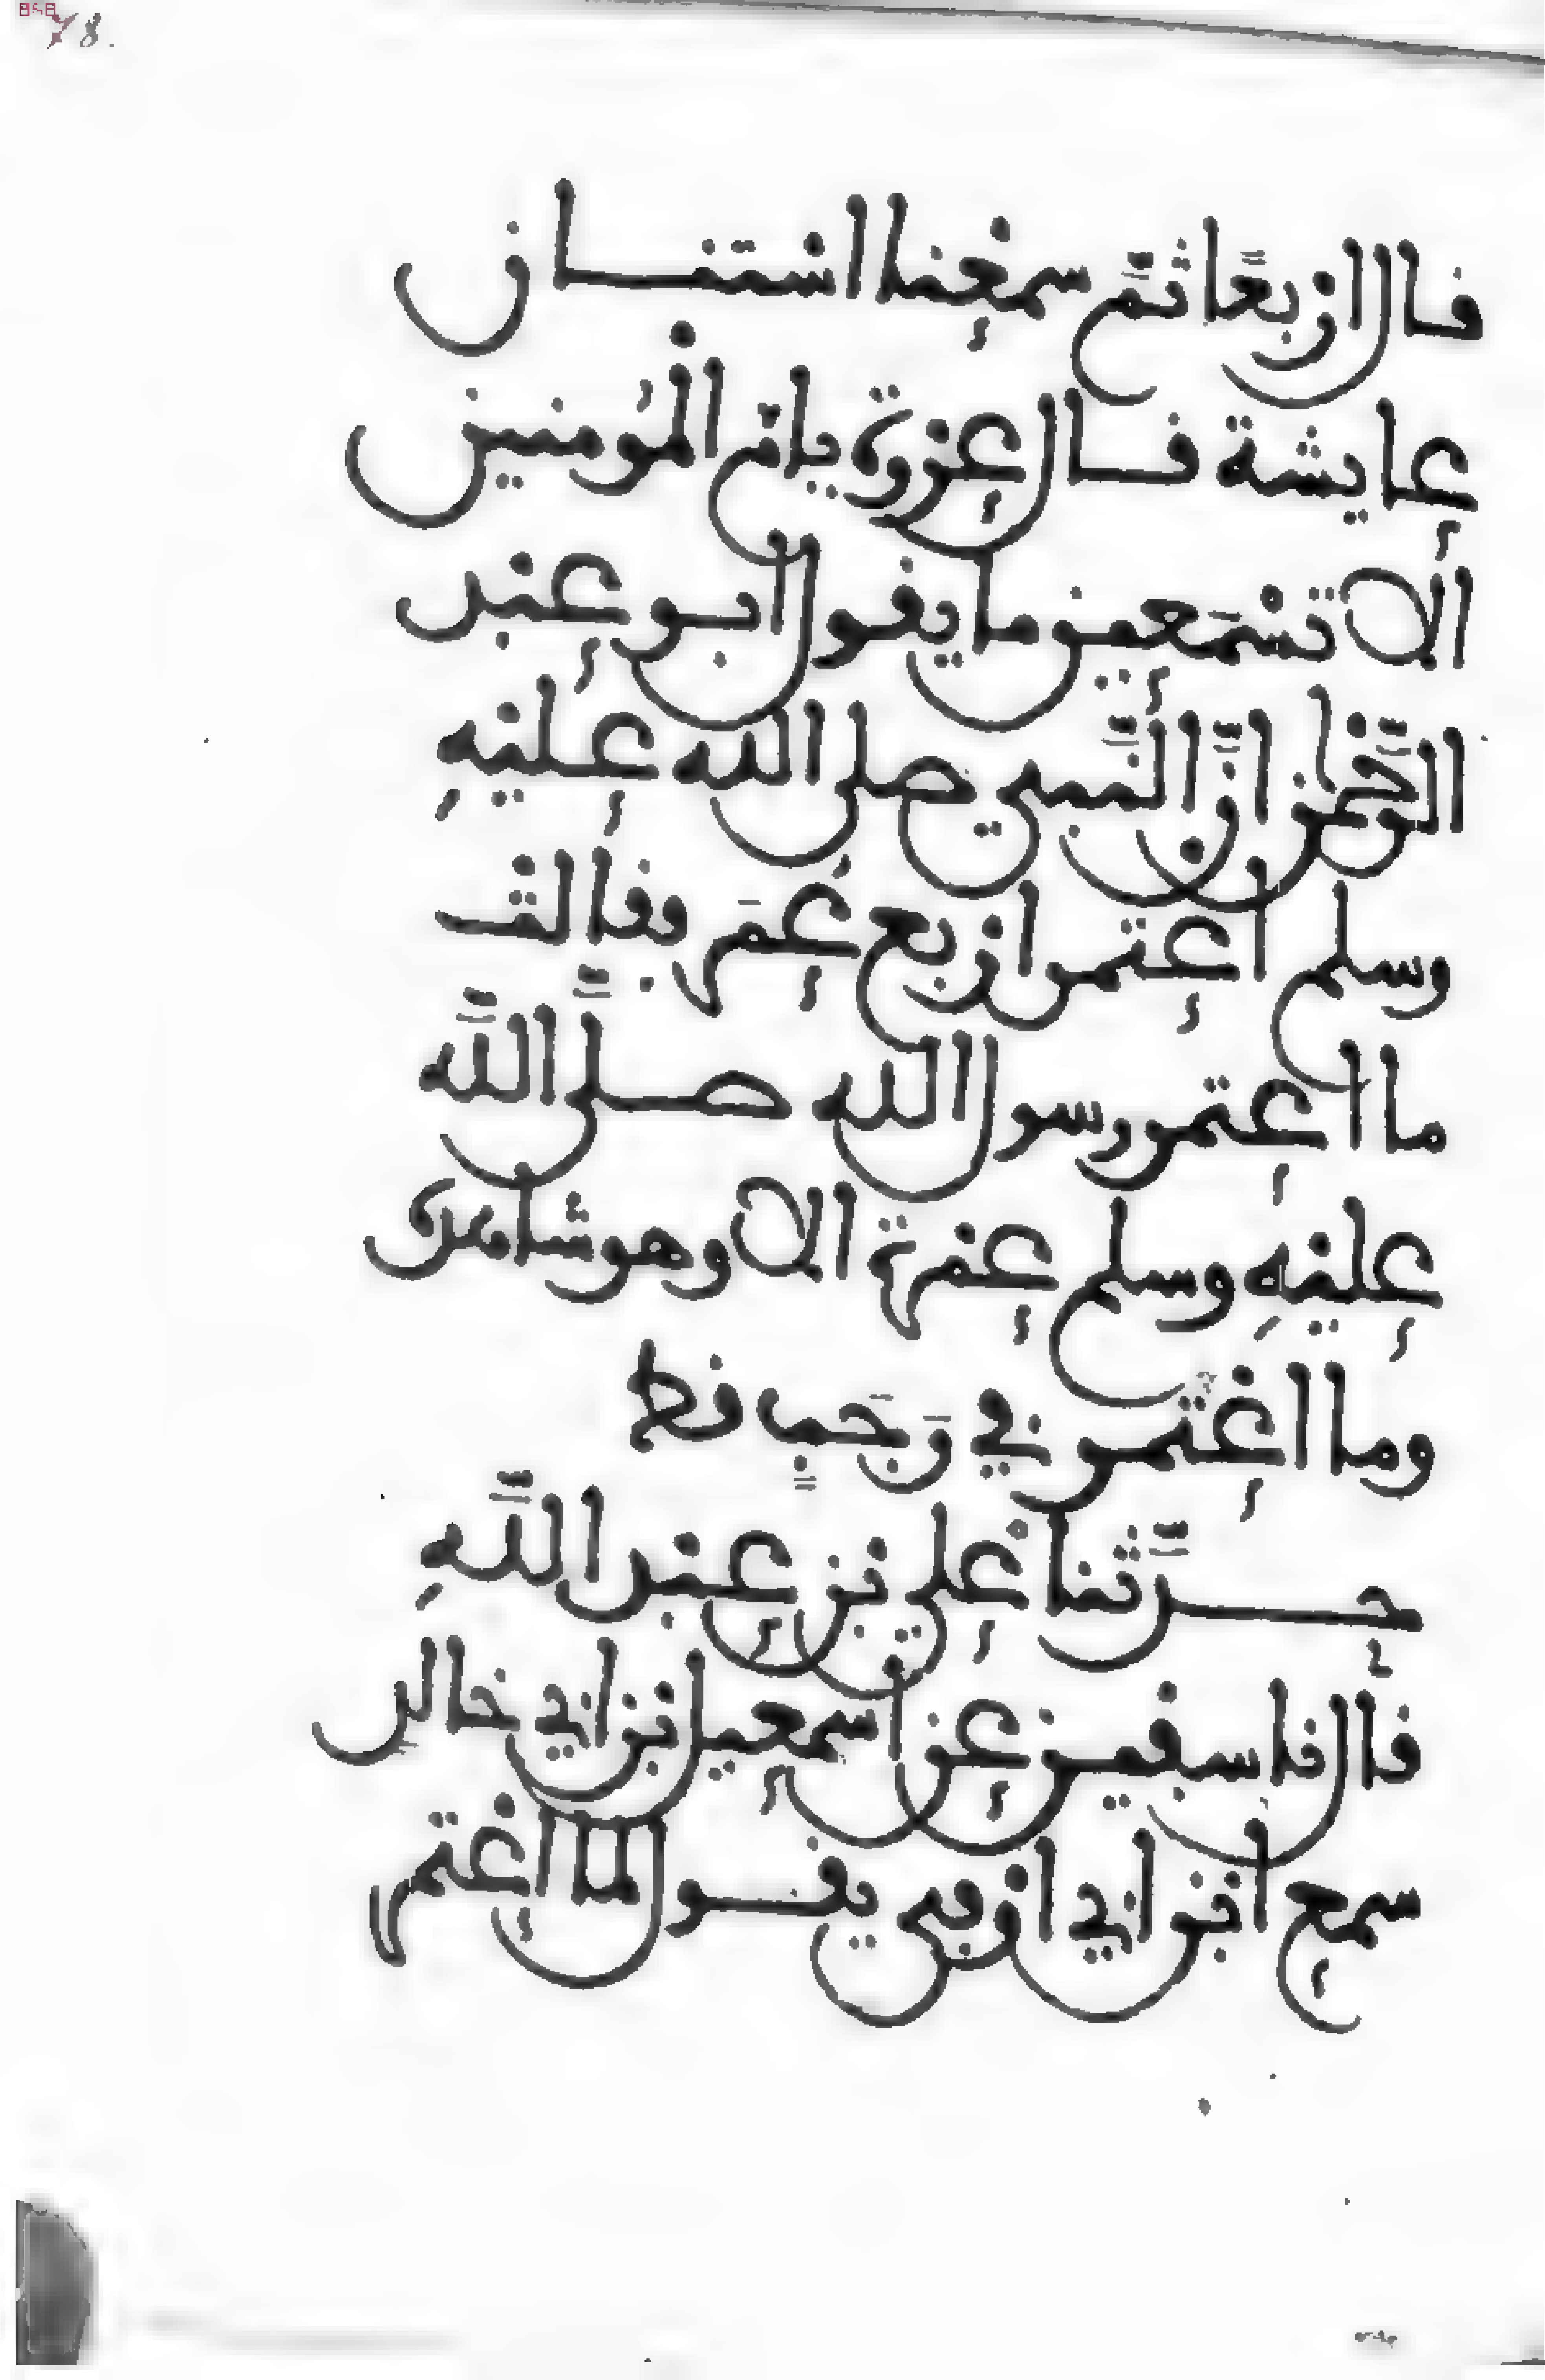 78.
قال اربعا ثم سمعنا استنان
عايشة قال عروة يا ام المومنين
الا تسمعين ما يقول ابو عبد
الرحمن ان النبي صلى الله عليه
وسلم اعتمر اربع عمر فقالت
ما اعتمر رسول الله صلى الله
عليه وسلم عمرة الا وهو شاهده
وما اعتمر في رجب قط
حدثنا علي بن عبد الله
قال نا سفين عن اسمعيل بن ابي خالد
سمع ابن ابي اوفى يقول لما اعتمر